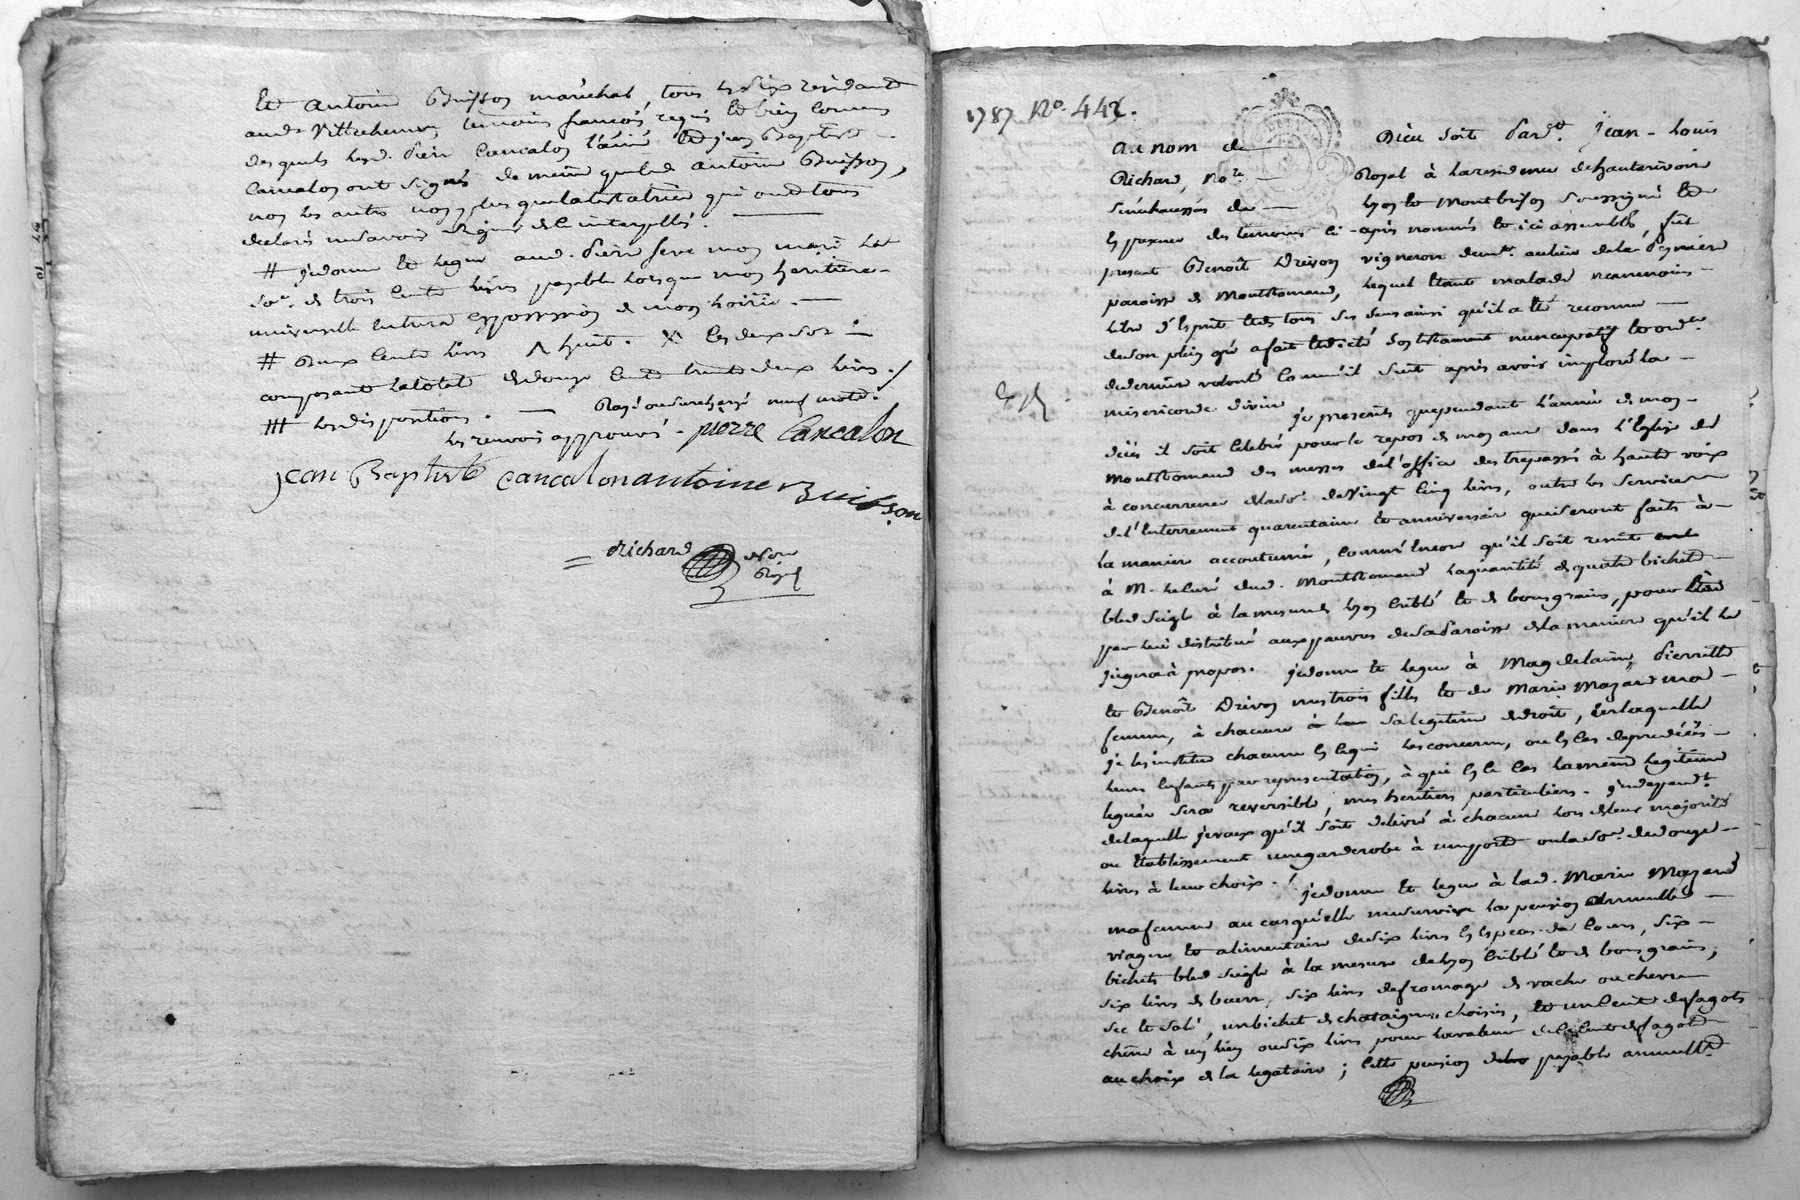 et antoine Buisson maréchal, tous les six residants
aud. Villechenève temoins francois requis et bien connus
desquels lesd. pierre Cancalon l'ainé et jean Baptiste
Cancalon ont signés de même que led antoine Buisson,
non les autres non plus que la testatrice qui ont tous
declarés ne savoir signer de ce interpellés.
# je donne et legue aud. pierre seve mon mari la
so.e de trois cents livres payable lorsque mon heritiere
universelle entrera en possession de mon hoirie.
# Deux cents livres
composants la totale de douze cents trente deux livres ./
### les dispositions. Rayé ou surchargé neuf mots.
les renvois approuvés. pierre Cancalon
jean Baptiste cancalon antoine Buisson
= Richard no.re
Royal
1787 No. 442.
Au nom de Dieu soit pard.t Jean-Louis
Richard, No.re Royal à la residence de hauterivoire
senéchaussés de Lyon et Montbrison soussigné et
en presence des temoins ci-après nommés et ici assemblés, fut
present Benoît Drivon vigneron demt. au lieu de la
paroisse de Montromand, lequel étant malade neanmoins
libre d'Esprit et de tous ses sens ainsi qu'il a été reconnu
de son plein gré a fait et dicté son testament nuncupatif et ord.ce
de derniere volonté comm'il suit après avoir imploré la
misericorde divine je prescrits que pendant l'année de mon
décès il soit celebré pour le repos de mon ame dans l'Eglise de
Montromand des messes de l'office des trepassés à haute voix
à concurrence de la so.e de Vingt cinq livres, outre les services
de l'enterrement quarantaine et anniversaire qui seront faits à
la maniere accoutumée, comm'encore qu'il soit remit
à M. le curé dud. Montromand la quantité de quatre bichets
bled seigle à la mesure de Lyon criblé et de bons grains, pour être
par lui distribué aux pauvres de sa paroisse de la maniere qu'il le
jugera à propos. je donne et legue à Magdelaine, Pierrette
et Benoîte Drivon mes trois filles et de Marie Mazard ma
femme, à chacune sa legitime de droit, en laquelle
je les institue chacune en ce qui les concerne, ou en cas de predécès
leurs enfants par representation, à qui en ce cas la même legitime
leguée sera reversible, mes heritiers particuliers. independ.t
de laquelle je veux qu'il soit delivré à chacune lors de leur majorité
ou Etablissement une garderobe à emporte ou la so.e de douze
livres à leur choix. / je donne et legue à lad. Marie Mazard
ma femme au cas qu'elle me survive la pension annuelle
viagere et alimentaire de six livres en especes de cours, six
bichets bled seigle à la mesure de Lyon criblé et de bons grains,
six livres de beurre, six livres de fromage de vache ou chevre
sec et salé, un bichet de chataignes choisies, et un cent de fagots
chêne à un lien ou six livres pour la valeur de ce cent de fagots
au choix de la legataire; cette pension payable annuell.t